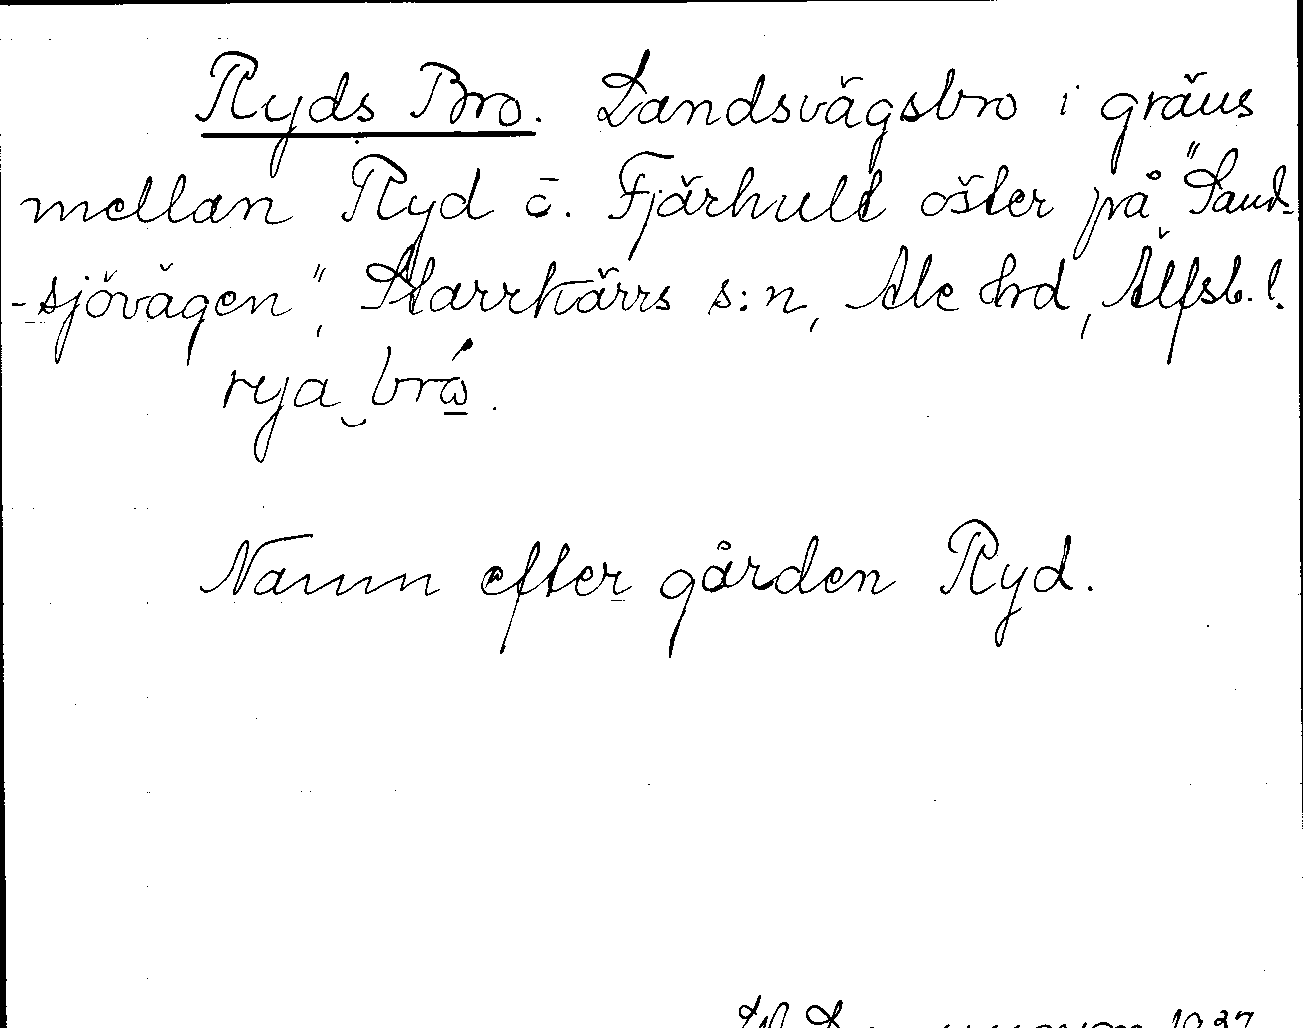 Ryds Bro. Landsvägsbro i gräns
mellan Ryd o. Fjärhult öster på "Sand-
-sjövägen", Starrkärrs s:n, Ale hrd, Älfsb. l.
rya brώ.
Namn efter gården Ryd.
1937